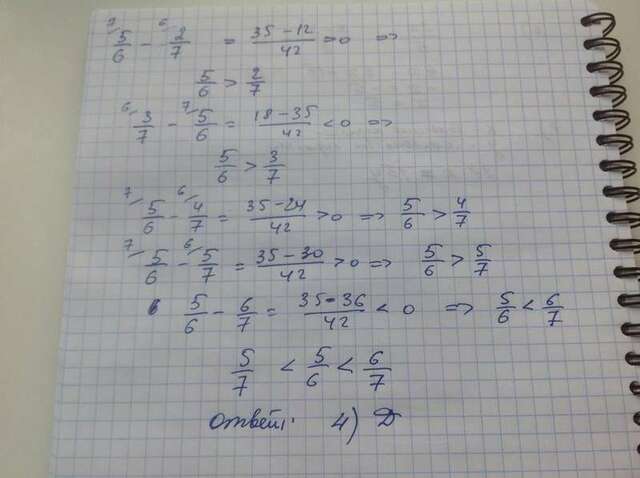 ⁷⁄5/6 − ⁶⁄2/7 = (35 − 12)/42 > 0 =>
5/6 > 2/7
⁶⁄3/7 − ⁷⁄5/6 = (18 − 35)/42 < 0 =>
5/6 > 3/7
⁷⁄5/6 − ⁶⁄4/7 = (35 − 24)/42 > 0 => 5/6 > 4/7
⁷⁄5/6 − ⁶⁄5/7 = (35 − 30)/42 > 0 => 5/6 > 5/7
5/6 − 6/7 = (35 − 36)/42 < 0 => 5/6 < 6/7
5/7 < 5/6 < 6/7
Ответ: 4) D